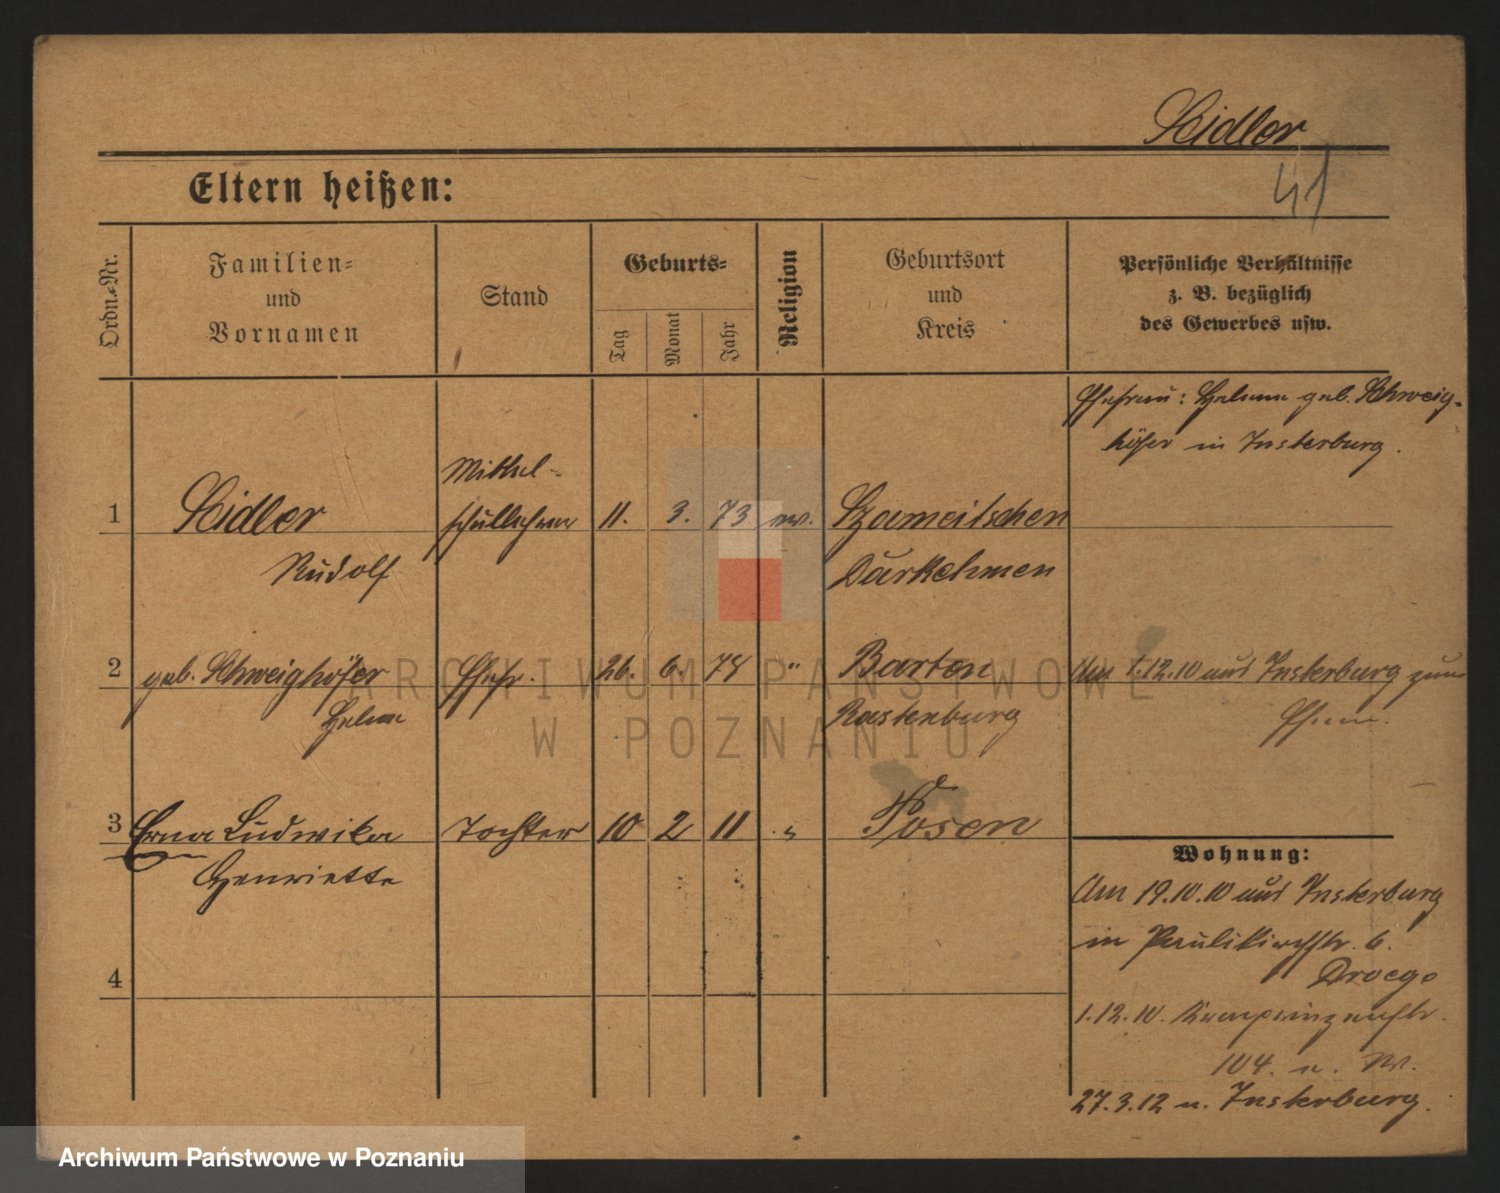 Seidler
41
Eltern heißen:
Ordn.-Nr.
Familien-
und
Vornamen
Stand
Geburts-
Tag
Monat
Jahr
Religion
Geburtsort
und
Kreis
Persönliche Verhältnisse
z. B. bezüglich
des Gewerbes usw.
Ehefrau: Helene geb. Schweig-
höfer in Insterburg.
1
Seidler
Rudolf
Mittel-
schullehrer
11. 3. 73 ev.
Szameitschen
Darkehmen
2
geb. Schweighöfer
Helene
Ehefr.
26. 6. 78 "
Barten
Rastenburg
Am 1.12.10 aus Insterburg zum
3
Erna Ludwika
Henriette
Tochter
10 2 11 "
Posen
4
Wohnung:
Am 19.10.10 aus Insterburg
in Paulikirchstr. 6.
Droege
1.12.10. Kronprinzenstr.
104. n. W.
27.3.12 n. Insterburg.
ARCHIWUM PAŃSTWOWE
W POZNANIU
Archiwum Państwowe w Poznaniu